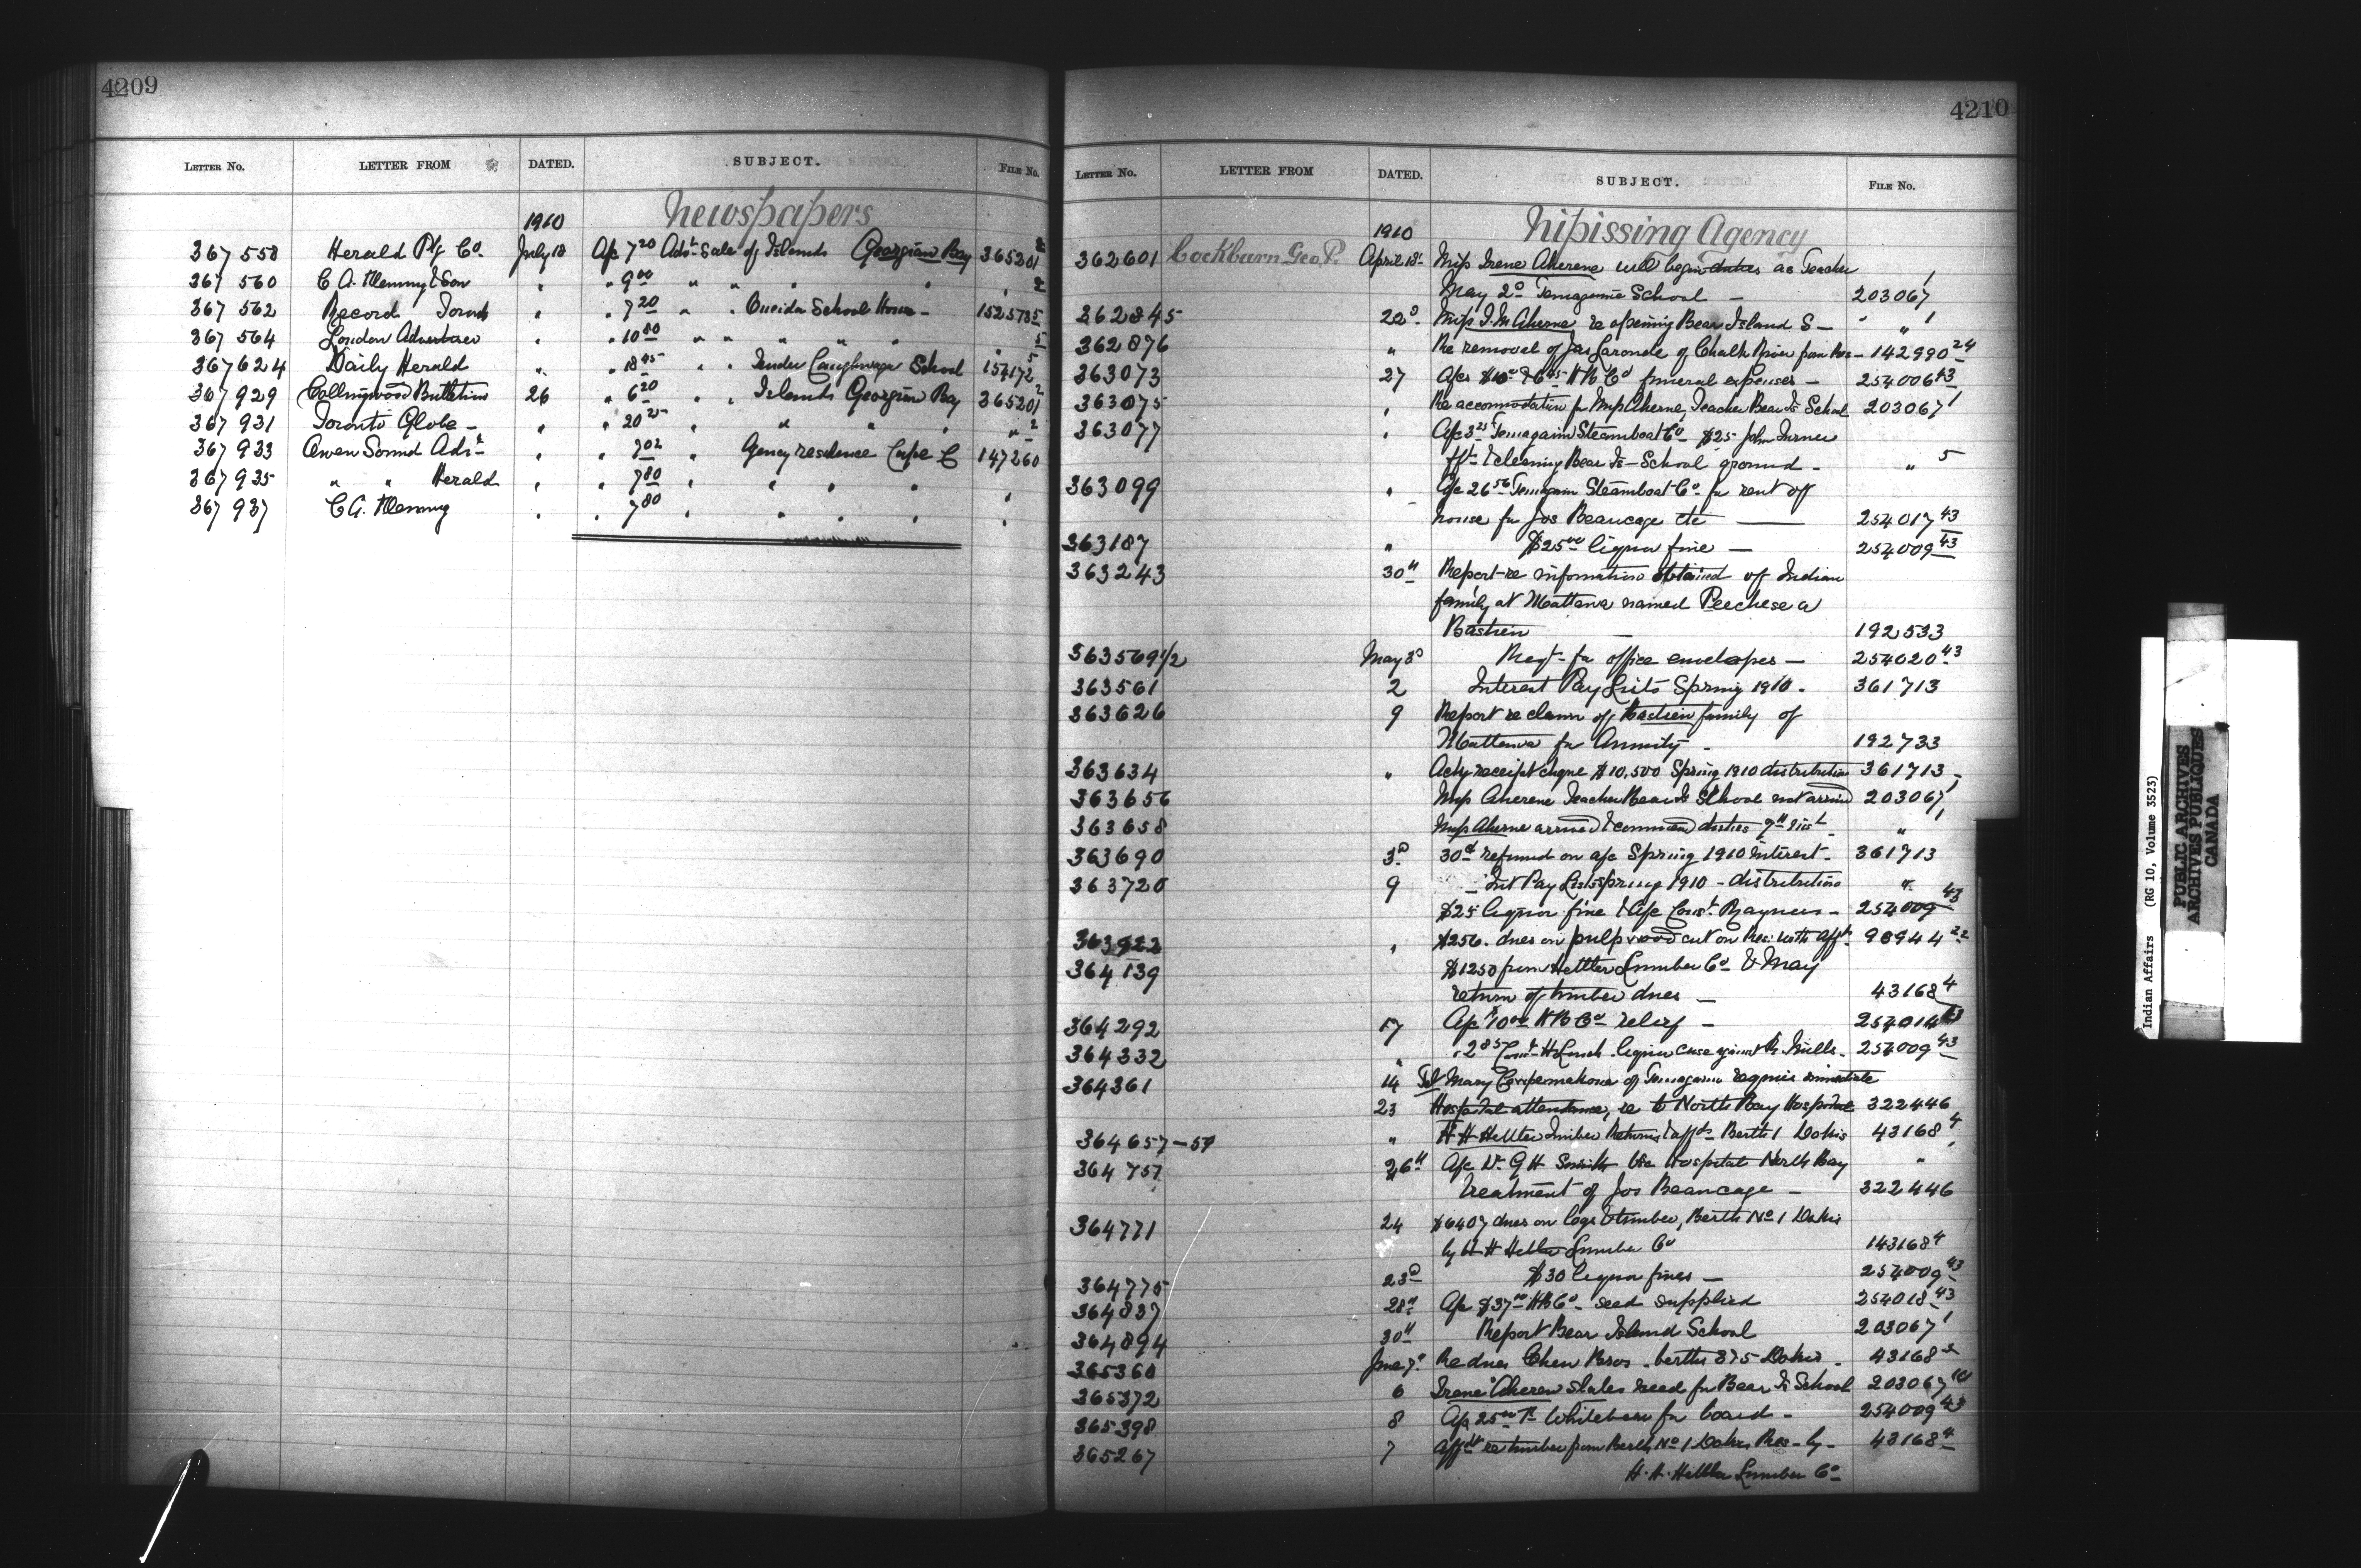 4209
LETTER NO. LETTER FROM DATED. SUBJECT. FILE NO.
Newspapers
1910
367558 Herald Ptg Co. July 18 A/c 7 20 Advt Sale of Islands Georgian Bay 365201 2
367560 C. A. Fleming & Son " " 9 00 " " " " 2
367562 Record " " 7 20 " " Oneida School House - 152578 5
367564 London Advertiser " " 10 80 " " " " " 5
367624 Daily Herald " " 18 45 " " Tender Caughnawaga School 154172 5
367929 Collingwood Bulletin 26 " 6 20 " " Islands Georgian Bay 365201 2
367931 Toronto Globe - " " 20 25 " " " " " 2
367933 Owen Sound Advr " " 7 02 " Agency residence Cape C 147260
367935 " " Herald " " 7 80 " " " "
367937 C. A. Fleming " " 7 80 " " " " "
4210
LETTER NO. LETTER FROM DATED. SUBJECT. FILE NO.
Nipissing Agency
1910
362601 Cockburn Geo. P. April 18 Miss Irene Aherene will begin duties as Teacher
May 2d Temagami School - 203067 1
362845 22d Miss I. M. Aherne, re opening Bear Island S - " 1
362876 " Re removal of Jas Laronde of Chalk River from Res - 142990 24
363073 27 A/cs H B Co funeral expenses - 254006 43
363075 " Re accommodation for Miss Aherne, Teacher Bear Is School 203067 1
363077 " A/c 3 25 Temagami Steamboat Co $25 John Turner
frt & cleaning Bear Is - School ground - " 5
363099 " A/c 26 56 Temagami Steamboat Co for rent of
house for Jos Beaucage etc 254017 43
363187 " $25 00 liquor fine - 254009 43
363243 30th Report re information obtained of Indian
family at Mattawa named Peechese a
Bastien - 192533
363569 1/2 May 3d Reqt for office envelopes - 254020 43
363561 2 Interest Pay Lists Spring 1910 - 361713
363626 9 Report re claim of Bastien family of
Mattawa for Annuity - 192733
363634 " Ackg receipt cheque $10,500 Spring 1910 distribution 361713 -
363656 Miss Aherene Teacher Bear Is School not arrived 203067 1
363658 Miss Aherne arrived & commenced duties 9th inst - " 1
363690 3d 30¢ refund on a/c Spring 1910 Interest - 361713
363720 9 - Int Pay Lists Spring 1910 - distribution "
$25 liquor fine & A/c Const. Rayner - 254009 43
363922 " $256. dues on pulpwood cut on Res. with affts 98944 22
364139 $1250 from Hettler Lumber Co & May
return of timber dues - 43168 4
364292 17 A/c 10 00 H B Co relief - 254014 43
364332 " " 2 85 Const H Lunch liquor case against 254009 43
364361 14 Tel Mary of Temagami requires immediate
23 Hospital attendance, re to North Bay Hospital 322446
364657-59 " H H Hettler Timber Returns & affts - Berth 1 Dokis 43168 4
364757 26th A/c Dr. G H Smith Vic Hospital North Bay "
Treatment of Jos Beaucage - 322446
364771 24 $6407 dues on logs & timber, Berth No 1 Dokis
by H H Hettler Lumber Co 143168 4
364775 23d $30 liquor fines - 254009 43
364837 28th A/c $37 00 H B Co - seed supplied 254018 43
364894 30th Report Bear Island School 203067 1
365360 June 7 Re dues Chew Bros - berths 3 & 5 Dokis - 43168
365372 6 Irene Aheren states need for Bear Is School 203067
365398 8 A/c 25 00 Whitebear for board - 254009 43
365267 7 Affts re timber from Berth No 1 Dokis Res - by - 43168 4
H. H. Hettler Lumber Co
Indian Affairs (RG 10, Volume 3523)
PUBLIC ARCHIVES
ARCHIVES PUBLIQUES
CANADA